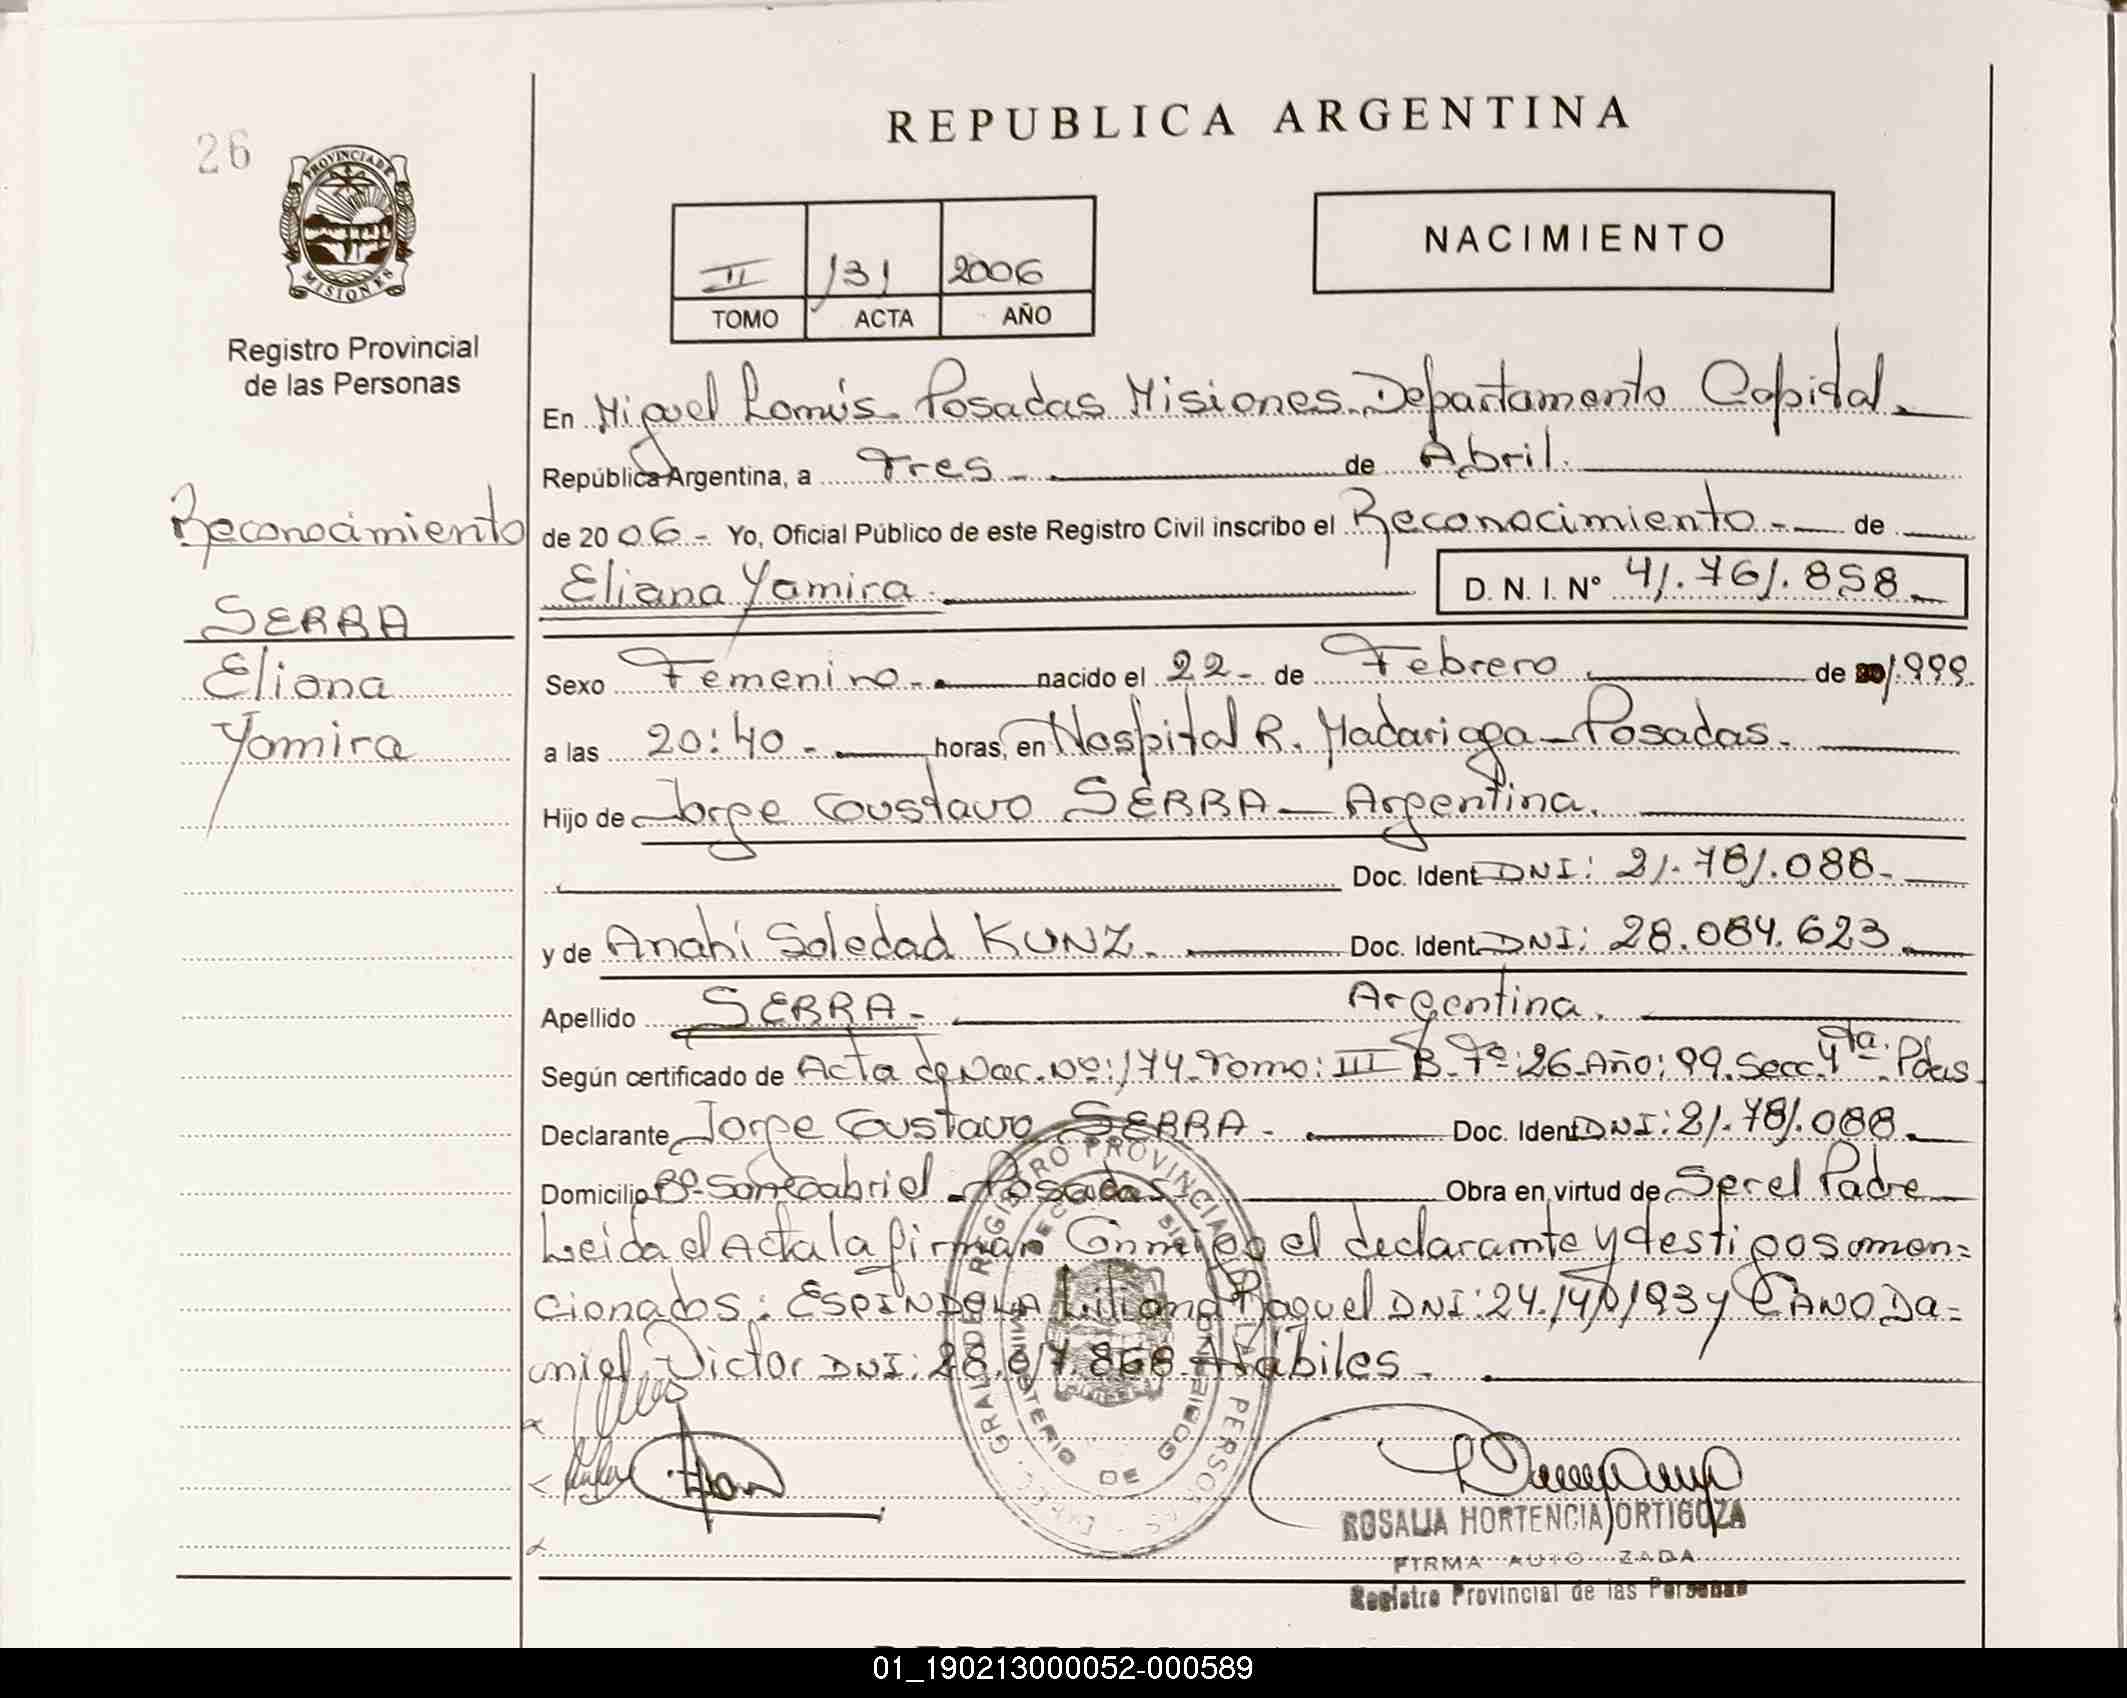 REPUBLICA ARGENTINA
26
PROVINCIA DE
MISIONES
Registro Provincial
de las Personas
II 131 2006
TOMO ACTA AÑO
NACIMIENTO
En Miguel Lanús Posadas Misiones Departamento Capital.
República Argentina, a Tres de Abril.
de 2006.- Yo, Oficial Público de este Registro Civil inscribo el Reconocimiento de
Eliana Yamira. D. N. I. Nº 41.761.858
Reconocimiento
SERRA
Eliana
Yamira
Sexo Femenino nacido el 22 de Febrero de 1.999.
a las 20:40 horas, en Hospital R. Madariaga Posadas.
Hijo de Jorge Gustavo SERRA Argentina.
Doc. Ident DNI: 21.781.088
y de Anahí Soledad KUNZ. Doc. Ident. DNI: 28.084.623
Apellido SERRA Argentina.
Según certificado de Acta de Nac. Nº: 174 Tomo: III B Fº: 26 Año: 99. Secc. 4ta. Pdas
Declarante Jorge Gustavo SERRA Doc. Ident DNI: 21.781.088
Domicilio Bº San Gabriel Posadas Obra en virtud de Ser el Padre
Leida el Acta la firman Conmigo el declarante y testigos omen=
cionados: ESPINDOLA Liliana Raquel DNI: y CANO Da=
niel Victor DNI: Hábiles
ROSALIA HORTENCIA ORTIGOZA
FIRMA AUTO ZADA
Registro Provincial de las Personas
GRAL DEL REGISTRO PROVINCIAL DE LAS PERSONAS
MINISTERIO DE GOBIERNO
01_190213000052-000589